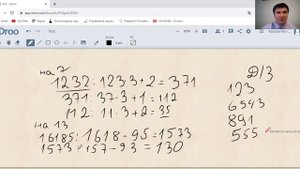 Droo
на 7
1232: 123·3+2 = 371
371: 37·3+1 = 112
112: 11·3+2 = 35
на 13
16185: 1618-9·5 = 1573
1573: 157-9·3 = 130
Д/З
123
6543
891
555